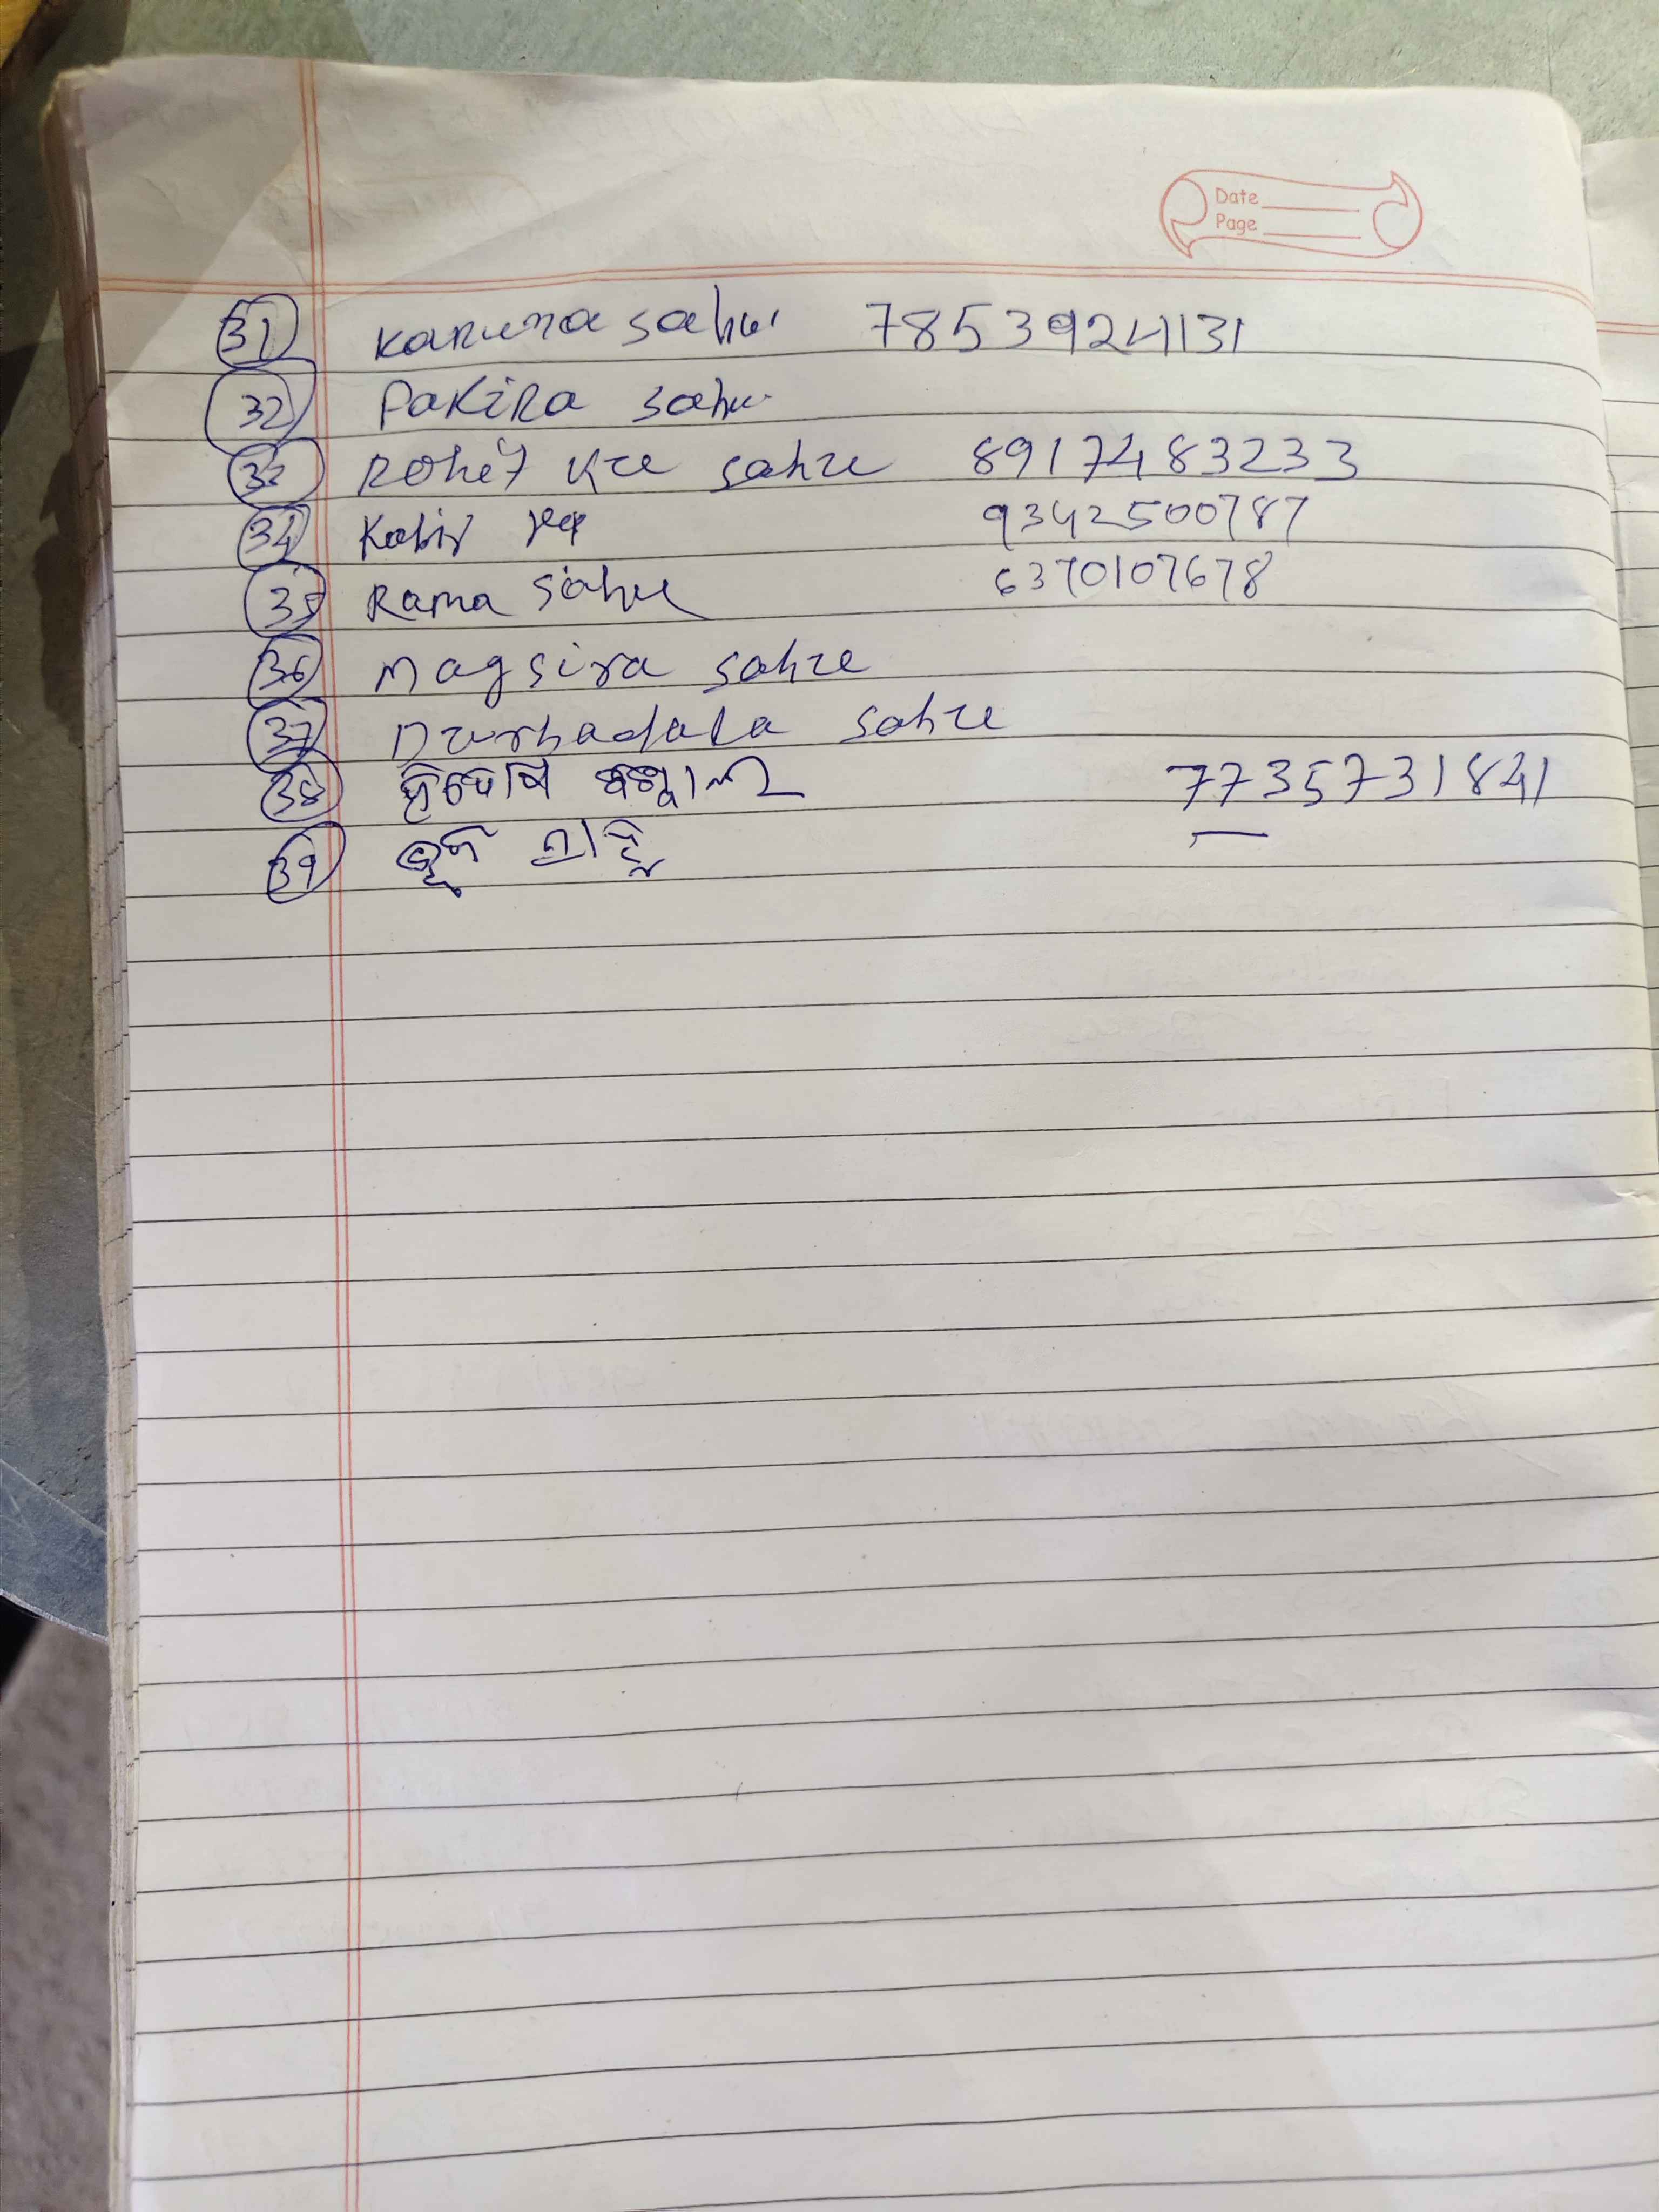 Date
Page
31 Karuna sahu 7853924131
32 Pakira sahu
33 Rohit Ku sahu 8917483233
34 Kabir 9342500787
35 Rama Sahu 6370107678
36 Magsira sahu
37 sahu
38 7735731841
39